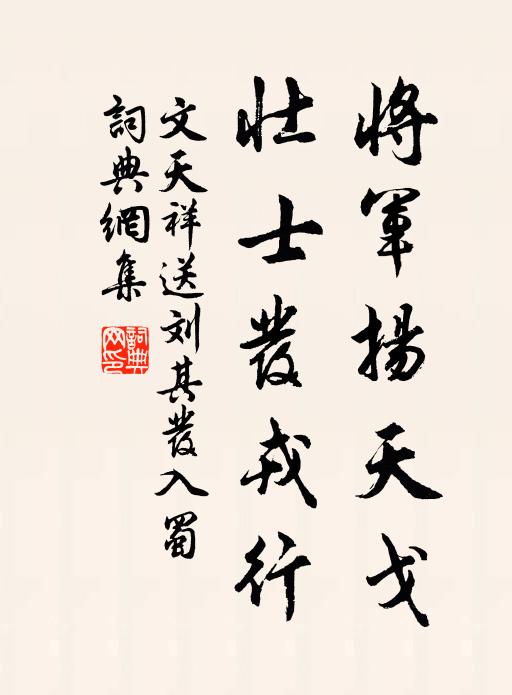 將軍揚天戈
壯士發戎行
文天祥送刘其發入蜀
詞典網集
詞典网印